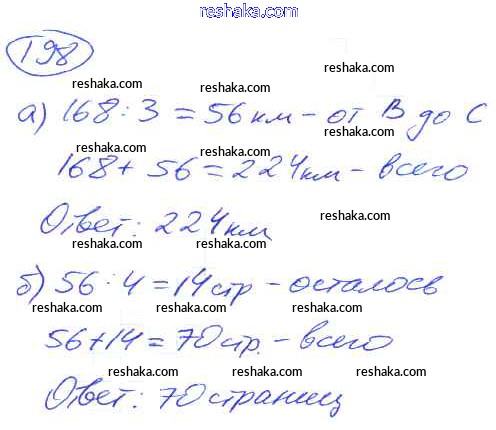 reshaka.com
198
reshaka.com
reshaka.com reshaka.com
а) 168 : 3 = 56 км – от В до С
reshaka.com reshaka.com
168 + 56 = 224 км – всего
reshaka.com
Ответ: 224 км
reshaka.com reshaka.com reshaka.com
б) 56 : 4 = 14 стр – осталось
reshaka.com reshaka.com reshaka.com
56 + 14 = 70 стр. – всего
reshaka.com reshaka.com reshaka.com
Ответ: 70 страниц